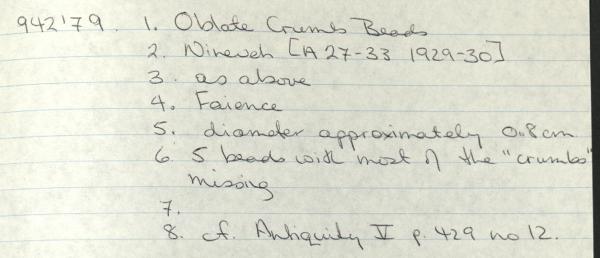 942'79. 1. Oblate Crumb Beads
2. Nineveh [A 27-33 1929-30]
3. as above
4. Faience
5. diameter approximately 0.8cm
6. 5 beads with most of the "crumbs"
missing
7.
8. cf. Antiquity V p. 429 no 12.